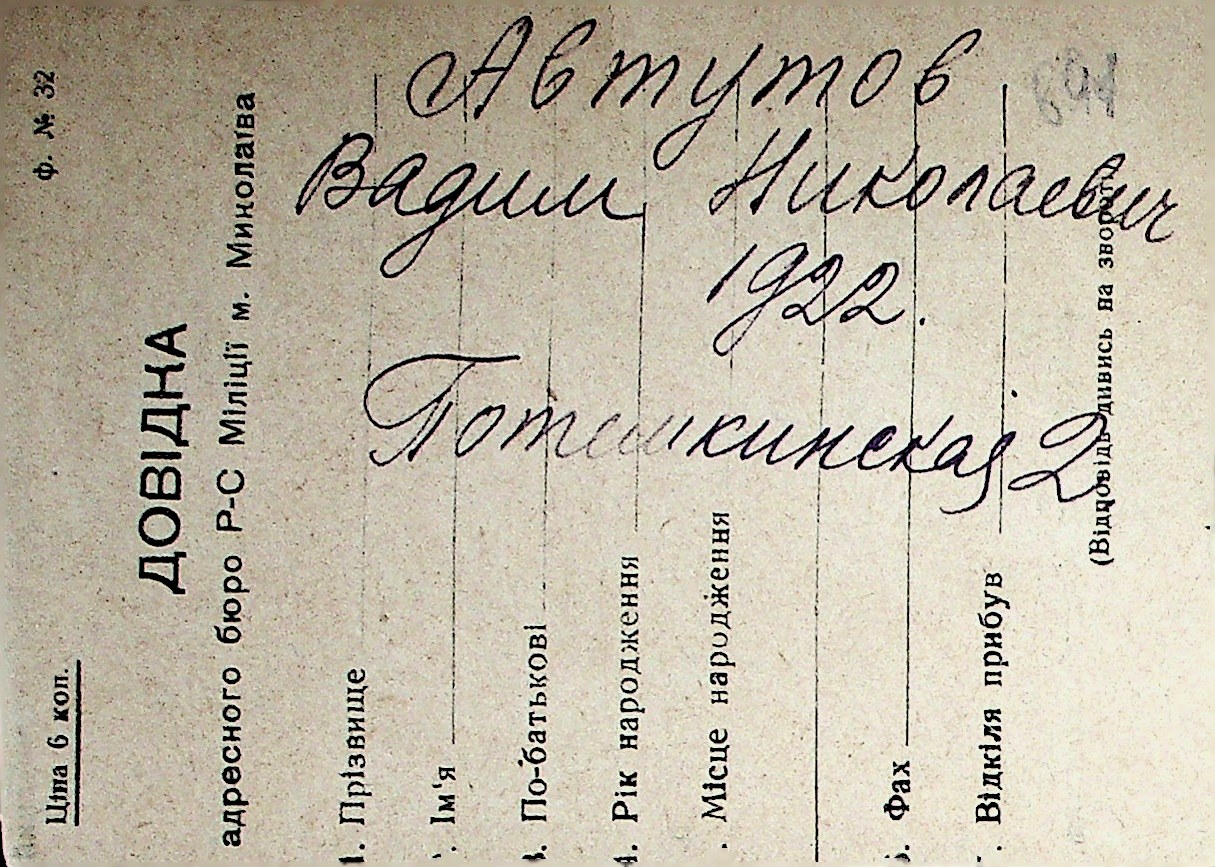 Автутов
Вадим Николаевич
1922.
Потемкинская 2
891
ф. № 32
Ціна 6 коп.
ДОВІДКА
адресного бюро Р-С Міліції м. Миколаїва
1. Прізвище
Ім'я
3. По-батькові
4. Рік народження
. Місце народження
Фах
Відкіля прибув
(Відповідь дивись на звороті